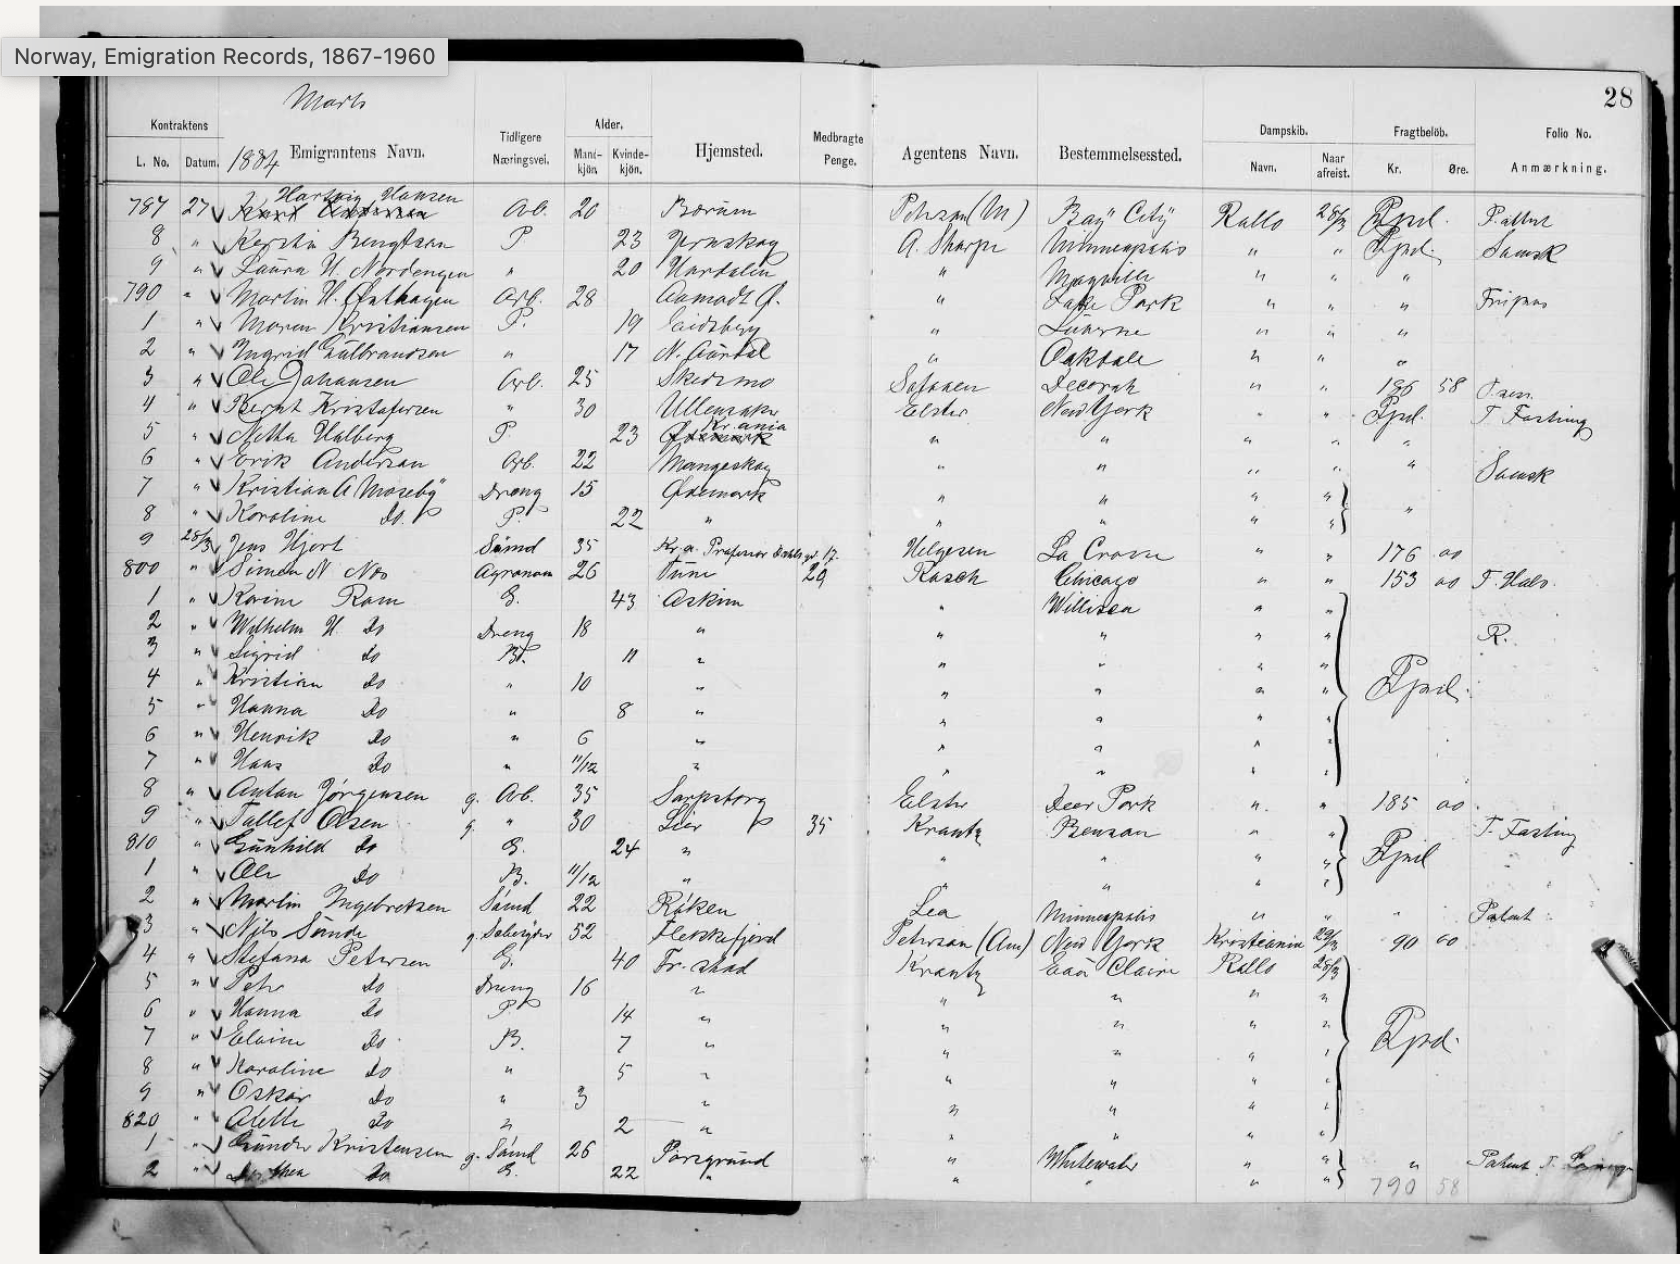 Norway, Emigration Records, 1867-1960
28
Marts
Kontraktens Tidligere Alder. Medbragte Dampskib. Fragtbelöb. Folio No.
L. No. Datum. 1884 Emigrantens Navn. Næringsvei. Mand-kjön. Kvinde-kjön. Hjemsted. Penge. Agentens Navn. Bestemmelsessted. Navn. Naar afreist. Kr. Öre. Anmærkning.
Hartvig Hansen
787 27 Arb. 20 Bærum Peterson (M) Bay City Rollo 28/3 Ppd.
8 " Kerstin Bengtson P 23 Jernskog A. Sharpe Minneapolis " " Ppd. Svensk
9 " Laura H. Nordengen " 20 Hurdalen " " " "
790 " Martin H. Østhagen Arb. 28 Aamodt Ø. " Park " " "
1 " Maren Kristiansen P. 19 Eidsberg " Luverne " " "
2 " Ingrid Gulbrandsen " 17 N. Aurdal " Oakdale " " "
3 " Ole Johansen Arb. 25 Skedsmo Decorah " " 186 58
4 " Bernt Kristofersen " 30 Ullensaker Elster New York " " Ppd. T. Fasting
Kr.ania
5 " Netta Halberg P. 23 " " " " "
6 " Erik Anderson Arb. 22 Mangeskog " " " " " Svensk
7 " Kristian A Moseby Dreng 15 Ødemark " " " "
8 " Karoline Do. P. 22 " " " " " "
9 28/3 Jens Hjort Sömd 35 Kr.a. Professor 17. Helgesen La Crosse " " 176 00
800 " Simen N. Næs Agronom 26 Tune 29 Rasch Chicago " " 153 00 T. Hals.
1 " Karine Ram G. 43 Askim " " "
2 " Wilhelm H. Do Dreng 18 " " " " " R.
3 " Sigrid do B. 11 " " " " "
4 " Kristian do " 10 " " " " " Ppd.
5 " Hanna Do " 8 " " " " "
6 " Henrik Do " 6 " " " " "
7 " Hans Do " 11/12 " " " " "
8 " Anton Jörgensen g. Arb. 35 Sarpsborg Elster Deer Park " " 185 00
9 " Tallef Olsen g. " 30 Lier 35 Krantz Benson " " T. Fasting
810 " Gunhild do G. 24 " " " " " Ppd
1 " Ole Do B. 11/12 " " " " "
2 " Martin Ingebretsen Sömd 22 Röken Lea Minneapolis " " " Patent
3 " Nils Sömde g. 52 Flekkefjord Peterson (Am) New York Kristiania 29/3 90 00
4 " Stefana Petersen G. 40 Fr. stad Krantz Eau Claire Rollo 28/3
5 " Peter Do Dreng 16 " " " " "
6 " Hanna Do P 14 " " " " "
7 " Elaine Do B. 7 " " " " " Ppd.
8 " Karoline Do " 5 " " " " "
9 " Oskar Do " 3 " " " " "
820 " Alette Do " 2 " " " " "
1 " Gunder Kristensen g. Sömd 26 Porsgrund " Whitewater " " " Patent T.
2 " Do G. 22 " " " " "
790 58